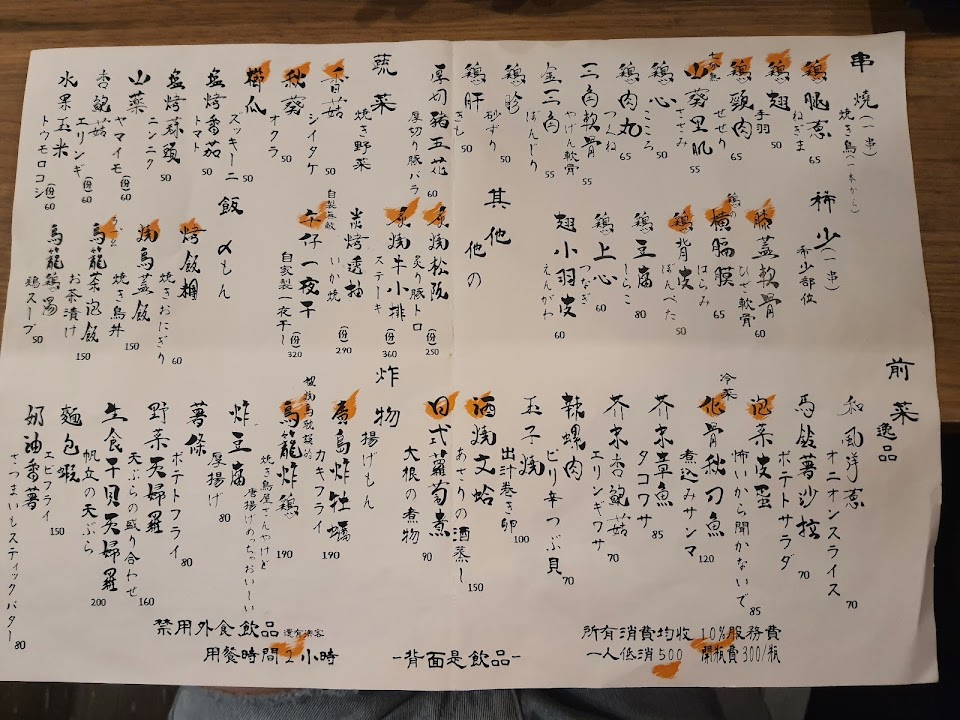 串燒(一串)
焼き鳥(一本から)
鷄腿蔥 65
ねぎま
鷄翅 50
手羽
鷄頸肉 65
せせり
山葵里肌 55
ささみ
鷄心 50
こころ
鷄肉丸 65
つくね
三角軟骨 55
やげん軟骨
金三角 55
ぼんじり
鷄胗 50
砂ずり
鷄肝 50
きも
厚切豬五花 60
厚切り豚バラ
蔬菜
焼き野菜
香菇 50
シイタケ
秋葵 50
オクラ
櫛瓜 50
ズッキーニ
塩烤番茄 50
トマト
塩烤蒜頭 50
ニンニク
山藥 (份)60
ヤマイモ
杏鮑菇 (份)60
エリンギ
水果玉米 (份)60
トウモロコシ
稀少(一串)
希少部位
膝蓋軟骨 60
ひざ軟骨
鷄の橫膈膜 65
はらみ
鷄背皮 50
ぼんぺた
鷄豆腐 80
しらこ
鷄上心 60
つなぎ
翅小羽皮 60
えんがわ
其他
其の他
炙燒松阪 (份)250
炙り豚トロ
炙燒牛小排 (份)360
ステーキ
炭烤透抽 (份)290
いか焼
自製無敵午仔一夜干 (份)320
自家製一夜干し
飯
〆もん
烤飯糰 60
焼きおにぎり
燒鳥蓋飯 150
焼き鳥丼
烏龍茶泡飯 150
お茶漬け
烏龍鷄湯 50
鷄スープ
前菜
逸品
和風洋蔥 70
オニオンスライス
馬鈴薯沙拉 70
ポテトサラダ
泡菜皮蛋 85
怖いから聞かないで
冷菜
化骨秋刀魚 120
煮込みサンマ
芥末章魚 85
タコワサ
芥末杏鮑菇 70
エリンギワサ
辣螺肉 70
ピリ辛つぶ貝
玉子燒 100
出汁巻き卵
酒燒文蛤 150
あさりの酒蒸し
日式蘿蔔煮 90
大根の煮物
炸物
揚げもん
廣島炸牡蠣 190
カキフライ
烏龍炸鷄 190
焼き鳥屋さんやけど
唐揚げのちゃおいしい
炸豆腐 80
厚揚げ
薯條 80
ポテトフライ
野菜天婦羅 160
天ぷらの盛り合わせ
生食干貝天婦羅 200
帆立の天ぷら
麵包蝦 150
エビフライ
奶油番薯 80
さつまいもスティックバター
禁用外食飲品
用餐時間2小時
-背面是飲品-
所有消費均收10%服務費
一人低消500 開瓶費300/瓶